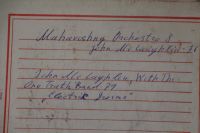 Mahavishnu Orchestra &
John McLaughlin
John McLaughlin With The
One Truth Band
"Electric